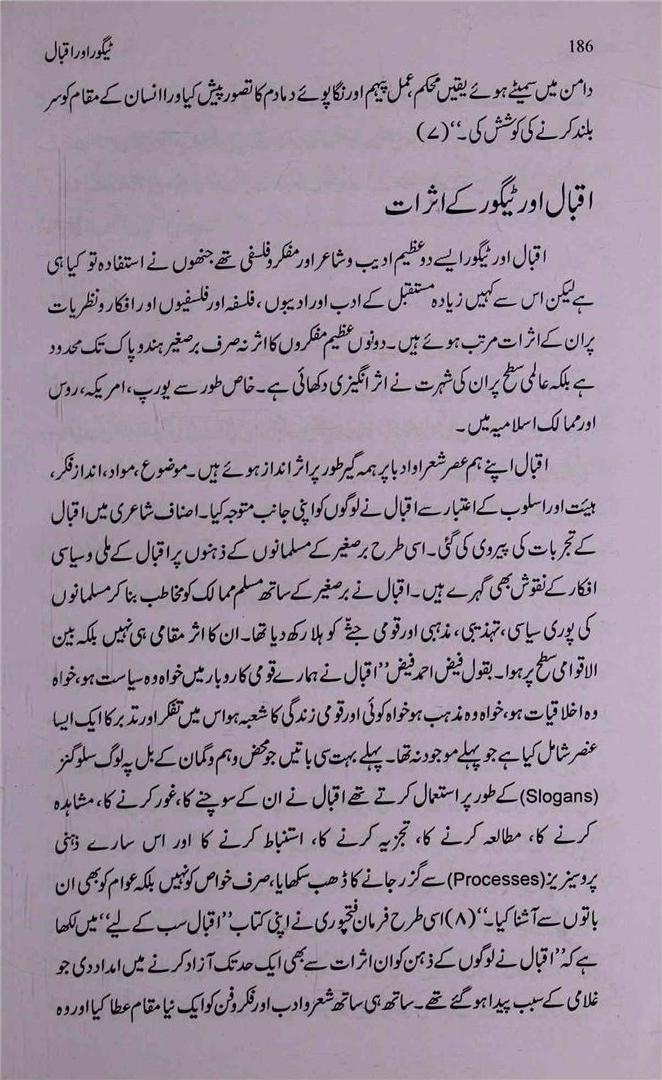 186
ٹیگور اور اقبال
دامن میں سمیٹے ہوئے یقیں محکم، عمل پیہم اور تگاپوئے دمادم کا تصور پیش کیا ورا انسان کے مقام کو سر
بلند کرنے کی کوشش کی۔‘‘ (۷)
اقبال اور ٹیگور کے اثرات
اقبال اور ٹیگور ایسے دو عظیم ادیب و شاعر اور مفکر و فلسفی تھے جنھوں نے استفادہ تو کیا ہی
ہے لیکن اس سے کہیں زیادہ مستقبل کے ادب اور ادیبوں، فلسفہ اور فلسفیوں اور افکار و نظریات
پر ان کے اثرات مرتب ہوئے ہیں۔ دونوں عظیم مفکروں کا اثر نہ صرف برصغیر ہندوپاک تک محدود
ہے بلکہ عالمی سطح پر ان کی شہرت نے اثر انگیزی دکھائی ہے۔ خاص طور سے یورپ، امریکہ، روس
اور ممالک اسلامیہ میں۔
اقبال اپنے ہم عصر شعرا و ادبا پر ہمہ گیر طور پر اثر انداز ہوئے ہیں۔ موضوع، مواد، انداز فکر،
ہیئت اور اسلوب کے اعتبار سے اقبال نے لوگوں کو اپنی جانب متوجہ کیا۔ اصناف شاعری میں اقبال
کے تجربات کی پیروی کی گئی۔ اسی طرح برصغیر کے مسلمانوں کے ذہنوں پر اقبال کے ملی و سیاسی
افکار کے نقوش بھی گہرے ہیں۔ اقبال نے برصغیر کے ساتھ مسلم ممالک کو مخاطب بنا کر مسلمانوں
کی پوری سیاسی، تہذیبی، مذہبی اور قومی جثّے کو ہلا رکھ دیا تھا۔ ان کا اثر مقامی ہی نہیں بلکہ بین
الاقوامی سطح پر ہوا۔ بقول فیض احمد فیض ’’اقبال نے ہمارے قومی کاروبار میں خواہ وہ سیاست ہو، خواہ
وہ اخلاقیات ہو، خواہ وہ مذہب ہو خواہ کوئی اور قومی زندگی کا شعبہ ہو اس میں تفکر اور تدبر کا ایک ایسا
عنصر شامل کیا ہے جو پہلے موجود نہ تھا۔ پہلے بہت سی باتیں جو محض وہم و گمان کے بل پہ لوگ سلوگنز
(Slogans) کے طور پر استعمال کرتے تھے اقبال نے ان کے سوچنے کا، غور کرنے کا، مشاہدہ
کرنے کا، مطالعہ کرنے کا، تجزیہ کرنے کا، استنباط کرنے کا اور اس سارے ذہنی
پروسیزیز (Processes) سے گزر جانے کا ڈھب سکھایا، صرف خواص کو نہیں بلکہ عوام کو بھی ان
باتوں سے آشنا کیا۔‘‘ (۸) اسی طرح فرمان فتحپوری نے اپنی کتاب ’’اقبال سب کے لیے‘‘ میں لکھا
ہے کہ ’’اقبال نے لوگوں کے ذہن کو ان اثرات سے بھی ایک حد تک آزاد کرنے میں امداد دی جو
غلامی کے سبب پیدا ہو گئے تھے۔ ساتھ ہی ساتھ شعر و ادب اور فکر و فن کو ایک نیا مقام عطا کیا اور وہ